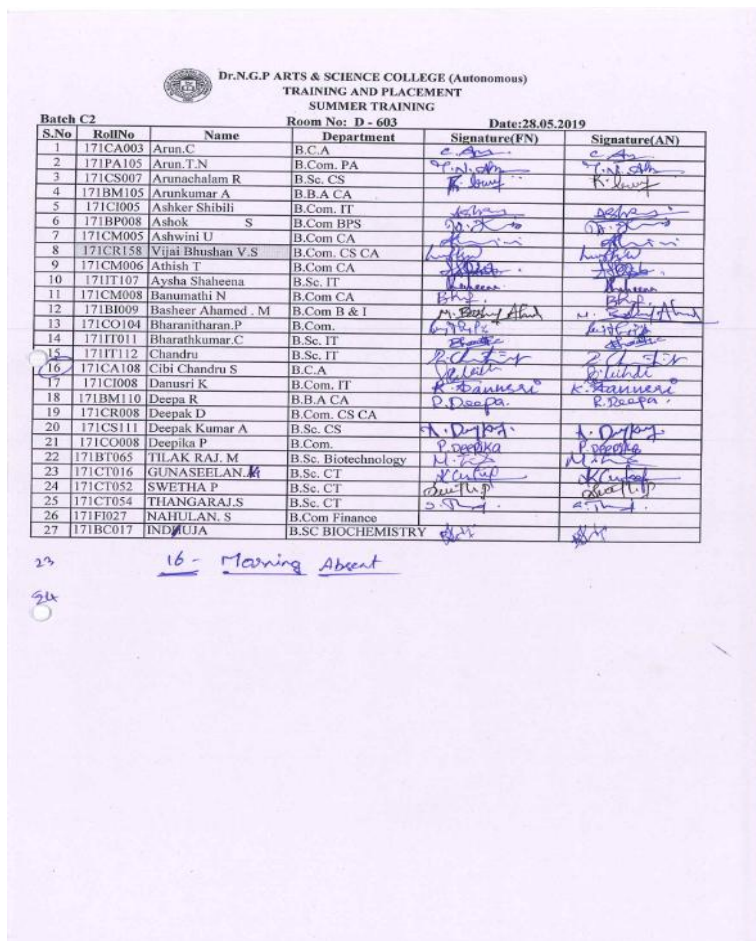 Dr.N.G.P ARTS & SCIENCE COLLEGE (Autonomous)
TRAINING AND PLACEMENT
SUMMER TRAINING
Batch C2 Room No: D - 603 Date:28.05.2019
S.No RollNo Name Department Signature(FN) Signature(AN)
1 171CA003 Arun.C B.C.A
2 171PA105 Arun.T.N B.Com. PA
3 171CS007 Arunachalam R B.Sc. CS
4 171BM105 Arunkumar A B.B.A CA
5 171CI005 Ashker Shibili B.Com. IT
6 171BP008 Ashok S B.Com BPS
7 171CM005 Ashwini U B.Com CA
8 171CR158 Vijai Bhushan V.S B.Com. CS CA
9 171CM006 Athish T B.Com CA
10 171IT107 Aysha Shaheena B.Sc. IT
11 171CM008 Banumathi N B.Com CA
12 171BI009 Basheer Ahamed . M B.Com B & I
13 171CO104 Bharanitharan.P B.Com.
14 171IT011 Bharathkumar.C B.Sc. IT
15 171IT112 Chandru B.Sc. IT
16 171CA108 Cibi Chandru S B.C.A
17 171CI008 Danusri K B.Com. IT
18 171BM110 Deepa R B.B.A CA R.Deepa. R.Deepa.
19 171CR008 Deepak D B.Com. CS CA
20 171CS111 Deepak Kumar A B.Sc. CS
21 171CO008 Deepika P B.Com. P.Deepika P.Deepika
22 171BT065 TILAK RAJ. M B.Sc. Biotechnology
23 171CT016 GUNASEELAN. B.Sc. CT
24 171CT052 SWETHA P B.Sc. CT
25 171CT054 THANGARAJ.S B.Sc. CT
26 171FI027 NAHULAN. S B.Com Finance
27 171BC017 INDHUJA B.SC BIOCHEMISTRY
23 16 - Morning Absent
24